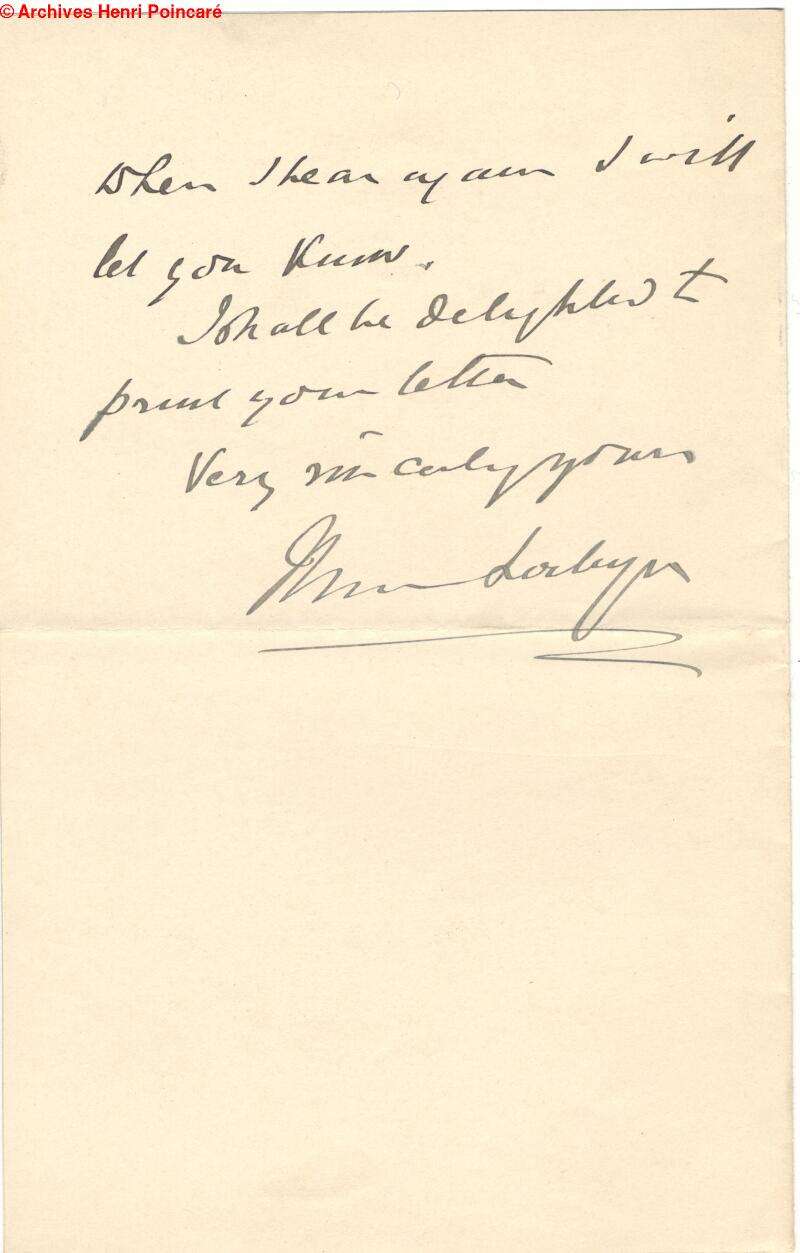 © Archives Henri Poincaré
When I hear again I will
let you know.
I shall be delighted to
print your letter
Very sincerely yours
Norman Lockyer